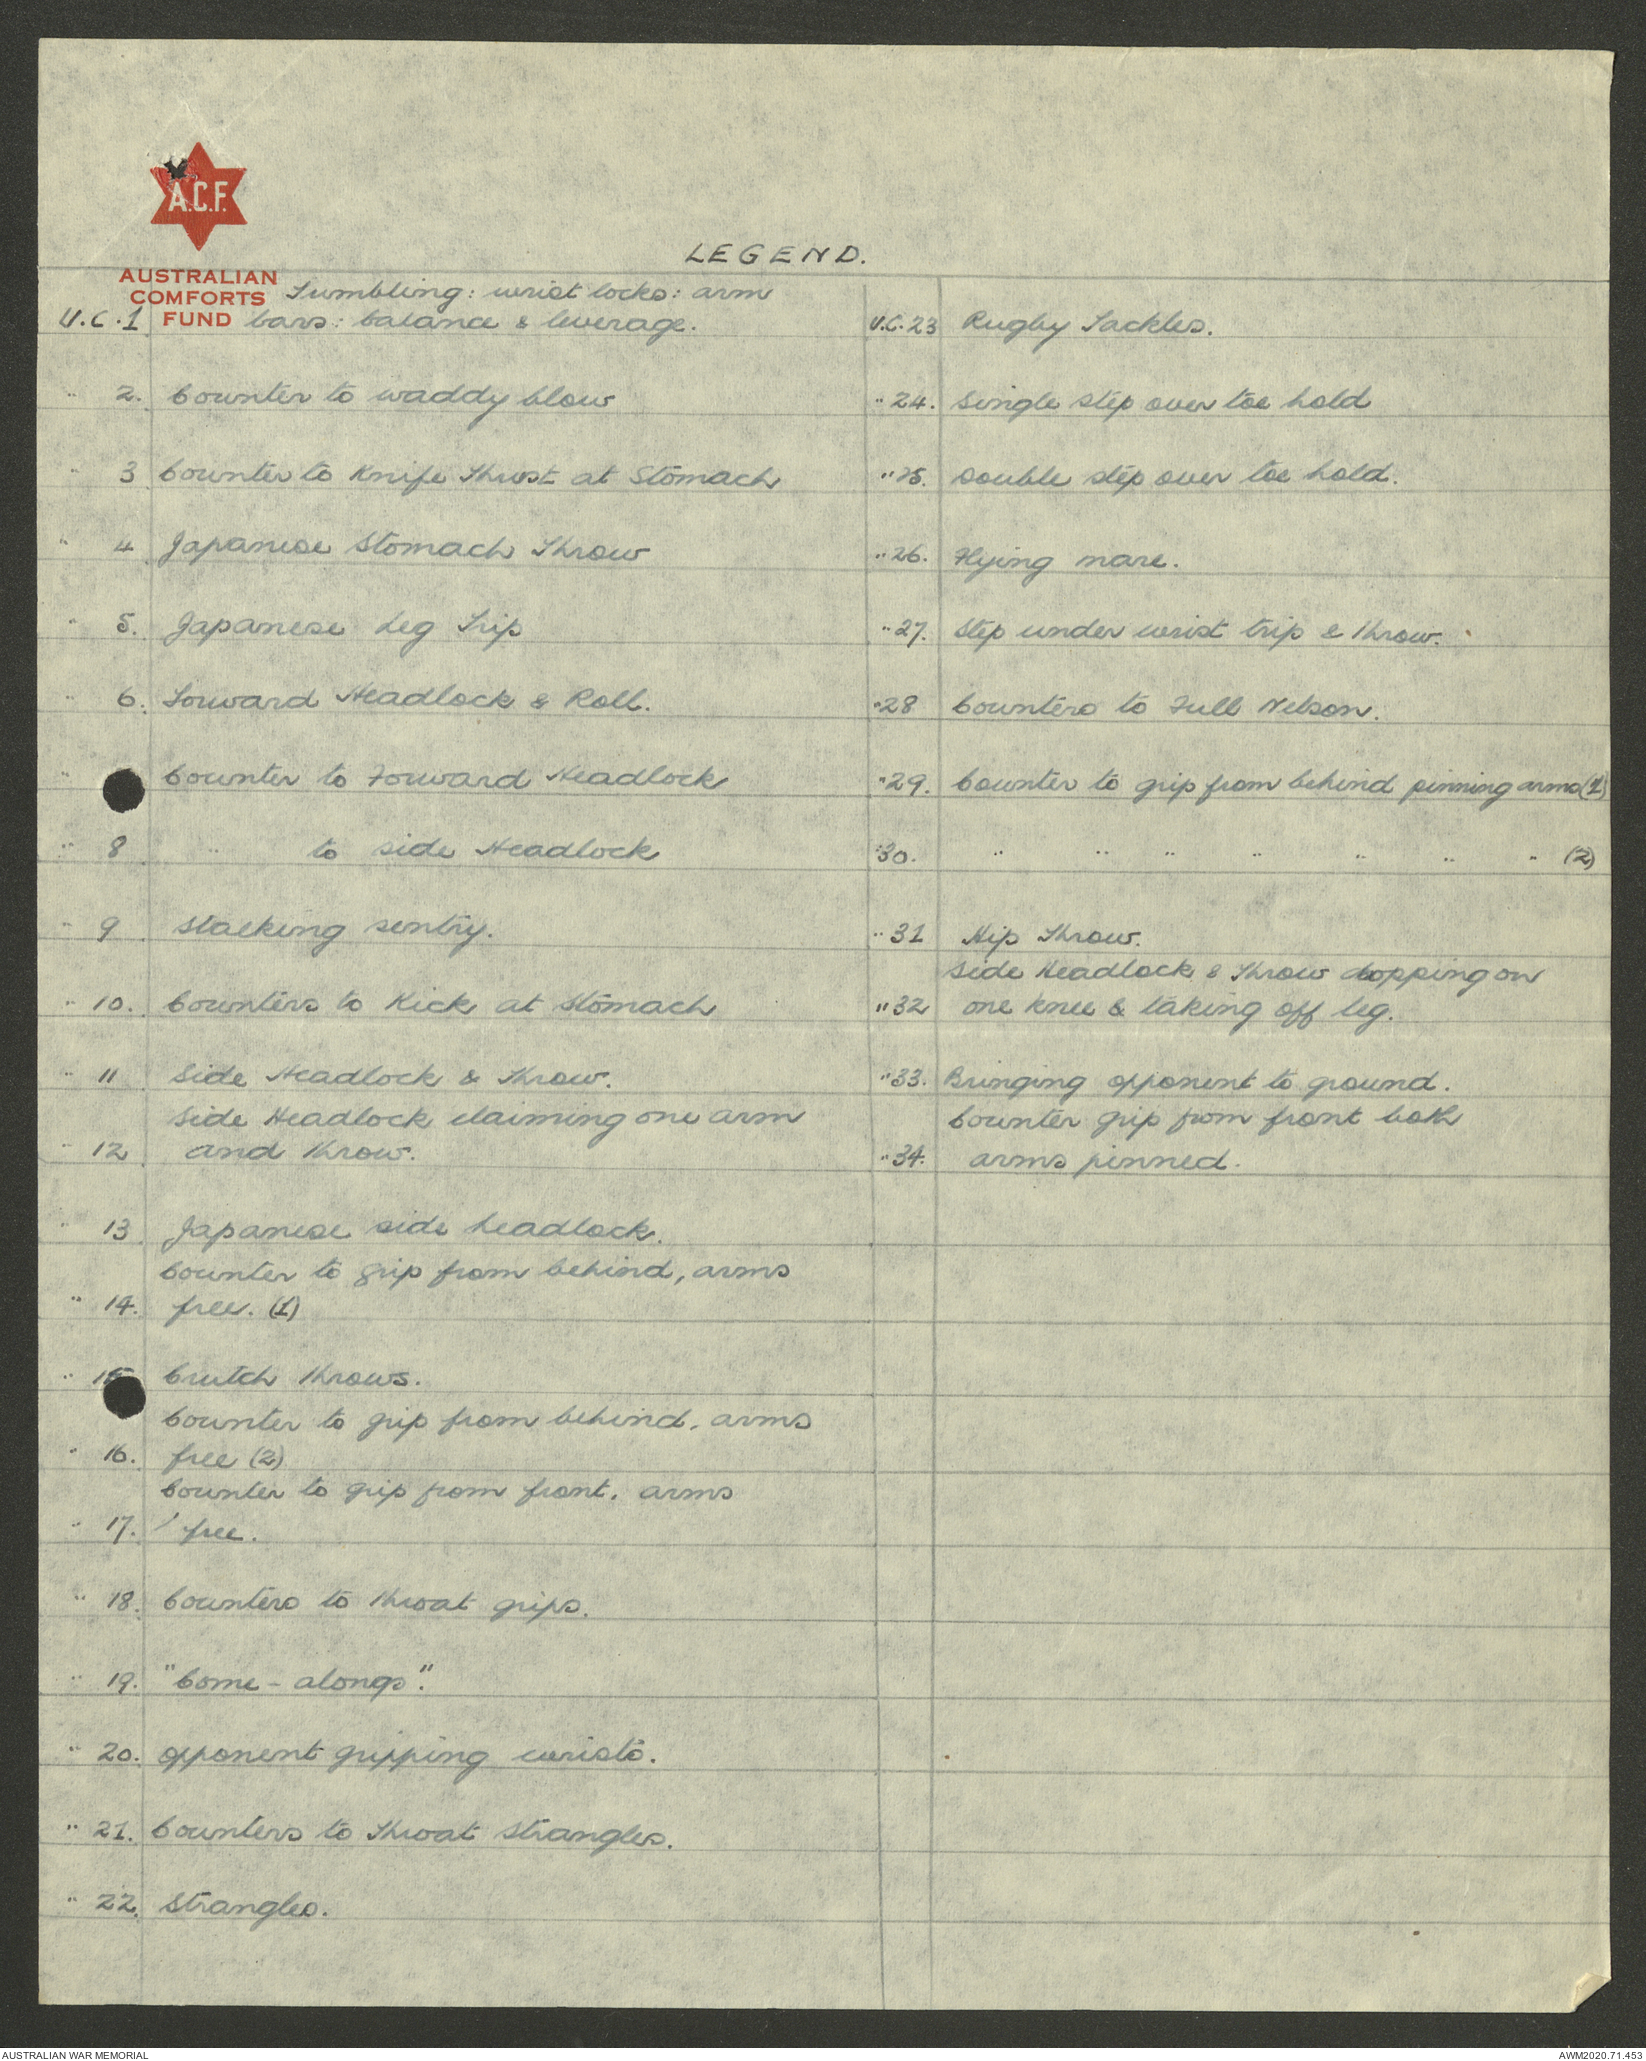 A.C.F.
AUSTRALIAN
COMFORTS
FUND
LEGEND.
Tumbling: wrist locks: arm
U.C.1 bars: balance & leverage.
" 2. Counter to waddy blow
" 3 Counter to Knife Thrust at Stomach
" 4 Japanese Stomach Throw
" 5. Japanese Leg Trip
" 6. Forward Headlock & Roll.
" Counter to Forward Headlock
" 8 " to side Headlock
" 9 Stalking sentry.
" 10. Counters to Kick at Stomach
" 11 Side Headlock & Throw.
Side Headlock claiming one arm
" 12 and throw.
" 13 Japanese side headlock.
Counter to grip from behind, arms
" 14. free. (1)
" 15 Crutch throws.
Counter to grip from behind, arms
" 16. free (2)
Counter to grip from front, arms
" 17. free.
" 18. Counters to throat grips.
" 19. "Come-alongs".
" 20. Opponent gripping wrists.
" 21. Counters to Throat Strangles.
" 22. Strangles.
U.C.23 Rugby Tackles.
" 24. Single step over toe hold
" 25. Double step over toe hold.
" 26. Flying mare.
" 27. Step under wrist trip & throw.
" 28 Counters to Full Nelson.
" 29. Counter to grip from behind pinning arms (1)
" 30. " " " " " " " (2)
" 31 Hip Throw.
Side Headlock & Throw dropping on
" 32 one knee & taking off leg.
" 33. Bringing opponent to ground.
Counter grip from front both
" 34. arms pinned.
AUSTRALIAN WAR MEMORIAL
AWM2020.71.453